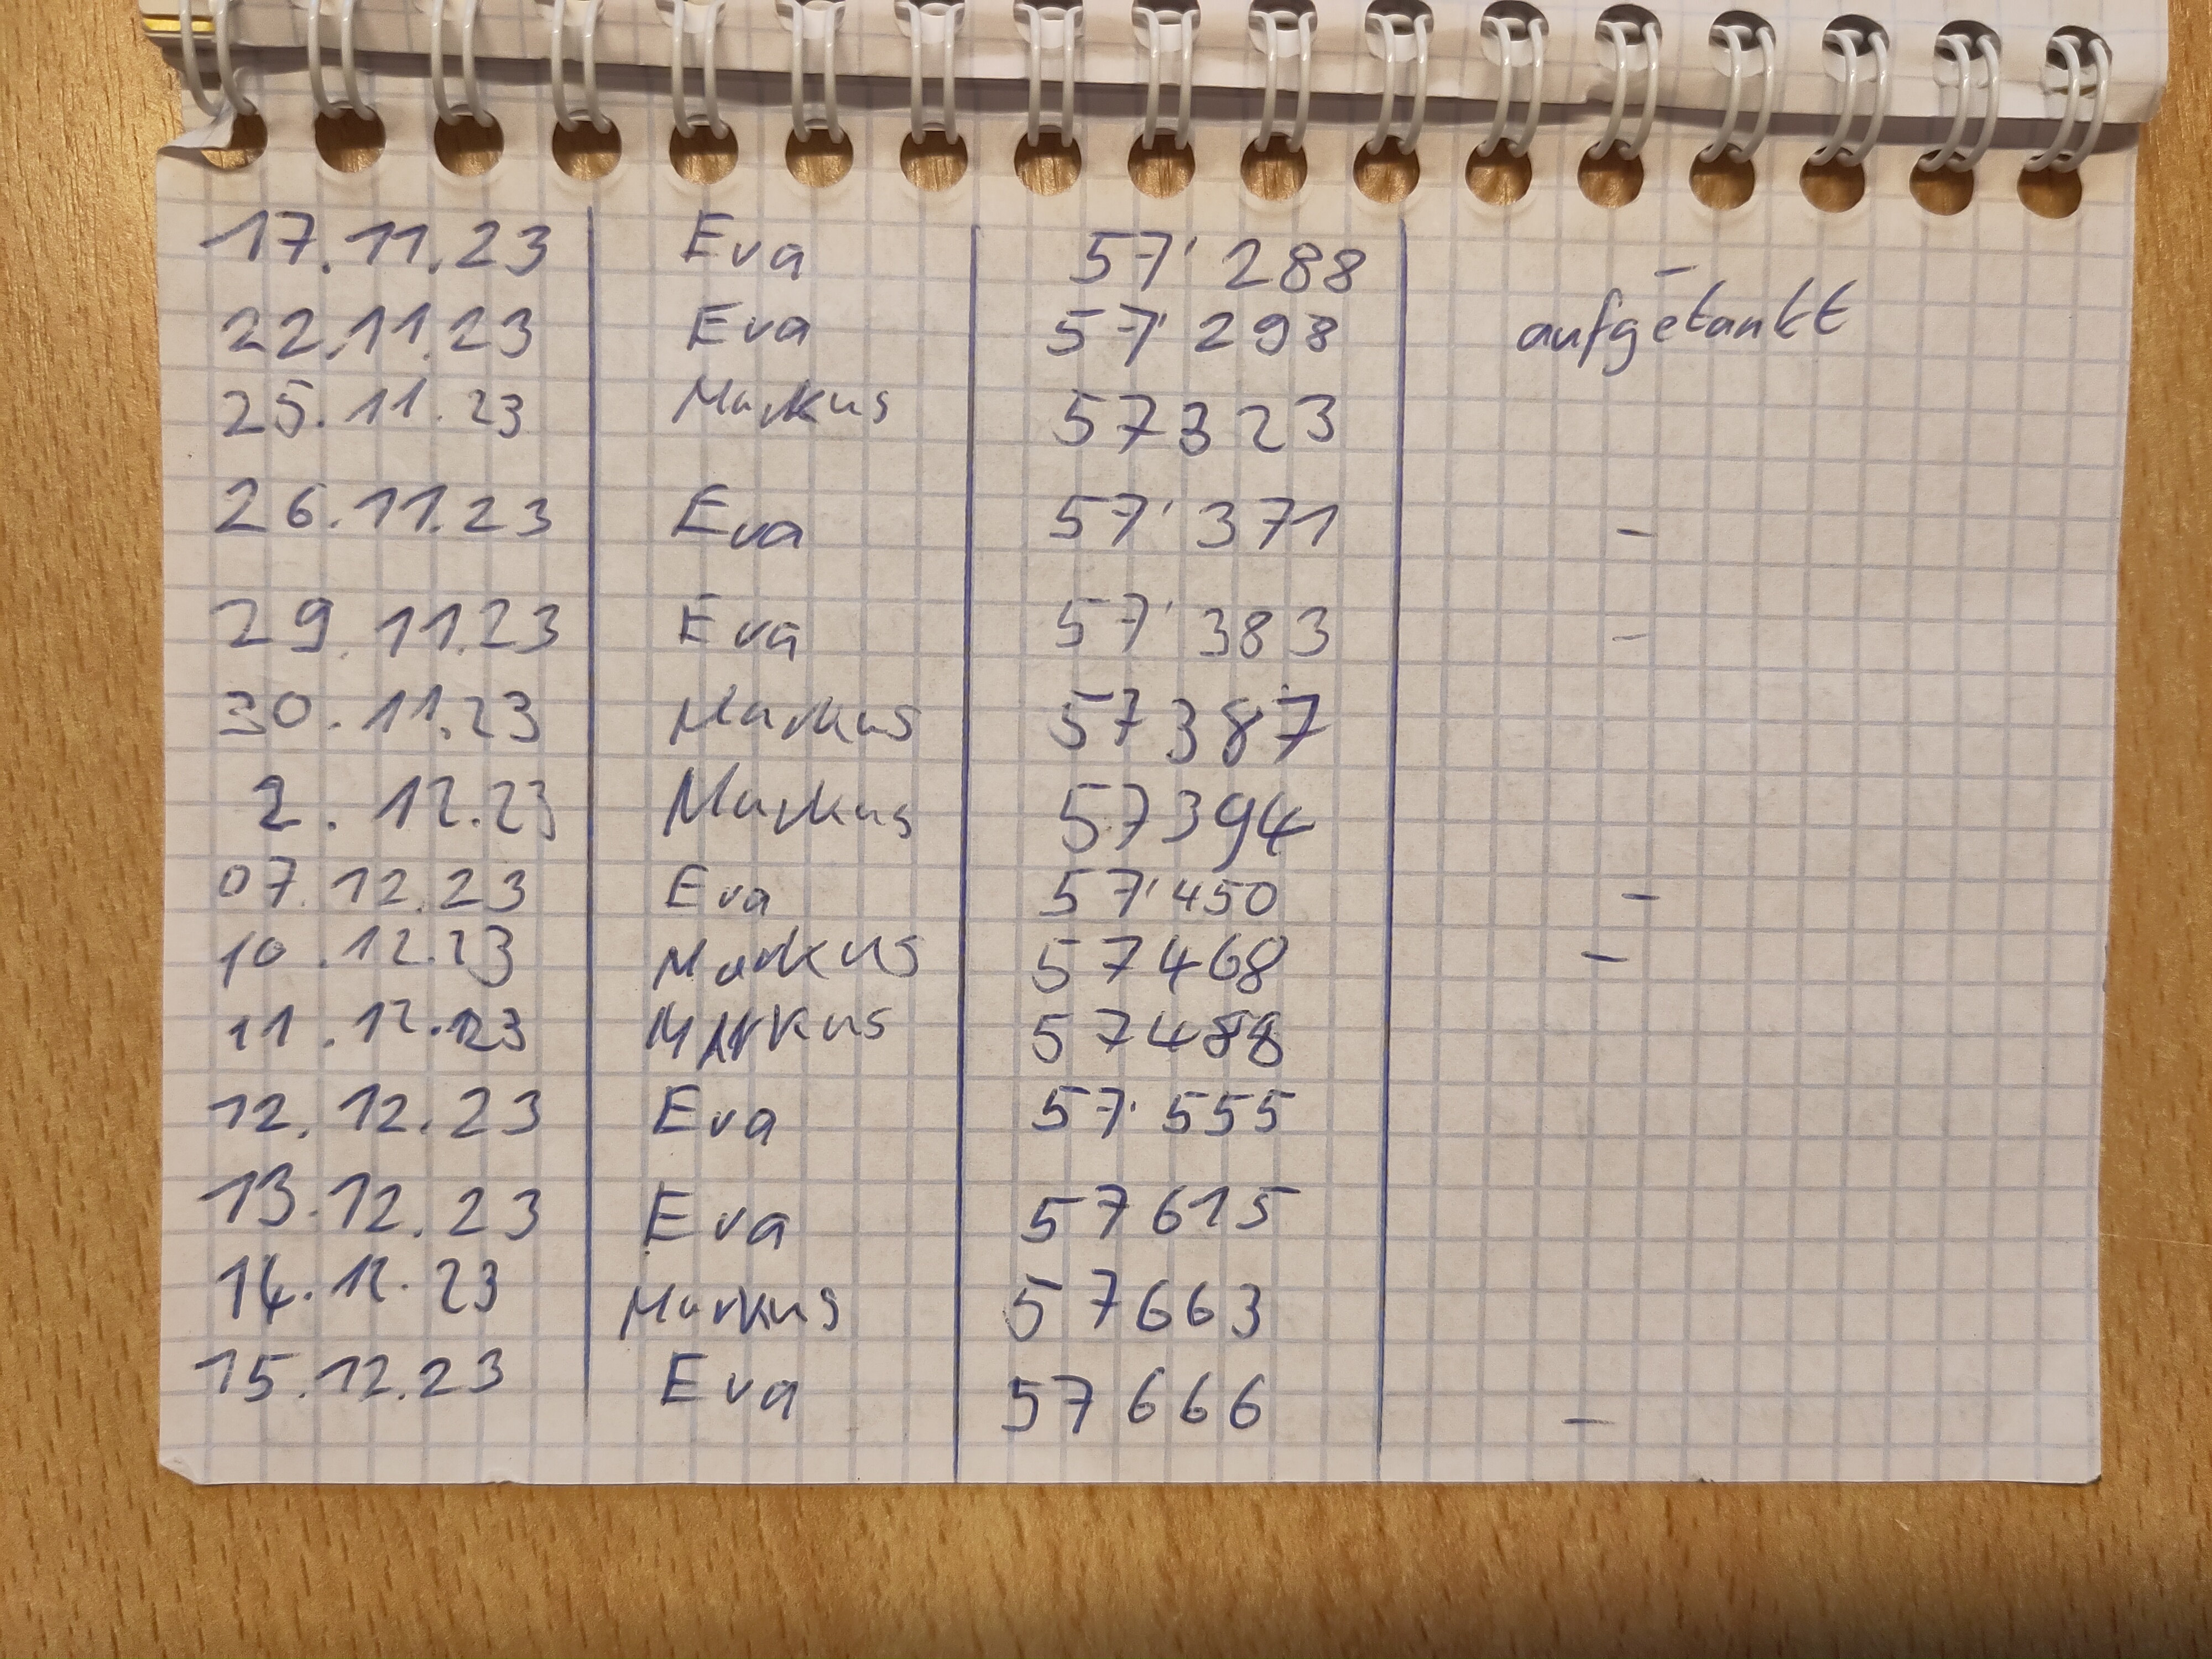 17.11.23 Eva 57'288 -
22.11.23 Eva 57'298 aufgetankt
25.11.23 Markus 57323
26.11.23 Eva 57'371 -
29.11.23 Eva 57'383 -
30.11.23 Markus 57387
2.12.23 Markus 57394
07.12.23 Eva 57'450 -
10.12.23 Markus 57468 -
11.12.23 Markus 57488
12.12.23 Eva 57'555
13.12.23 Eva 57615
14.12.23 Markus 57663
15.12.23 Eva 57666 -